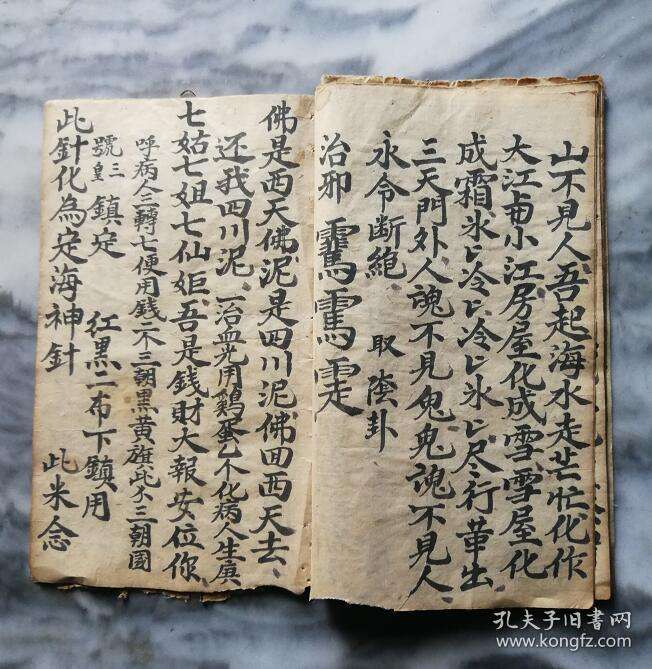 山不見人吾起海水走茫忙化作
大江甫小江房屋化成雪雪屋化
成霜氷〻冷〻冷〻氷〻尽行革出
三天門外人魂不見鬼鬼魂不見人
永令断絶 取陰卦
治邪
佛是西天佛泥是四川泥佛回西天去
还我四川泥一治血光用鷄蛋乙个化病人生庚
七姑七姐七仙姬吾是錢財大報安位你
呼病人三轉七便用錢二不三朝黒黄旗此不三朝國
號三皇鎮定 红黒一布下鎮用
此針化為定海神針 此米念
孔夫子旧书网
www.kongfz.com